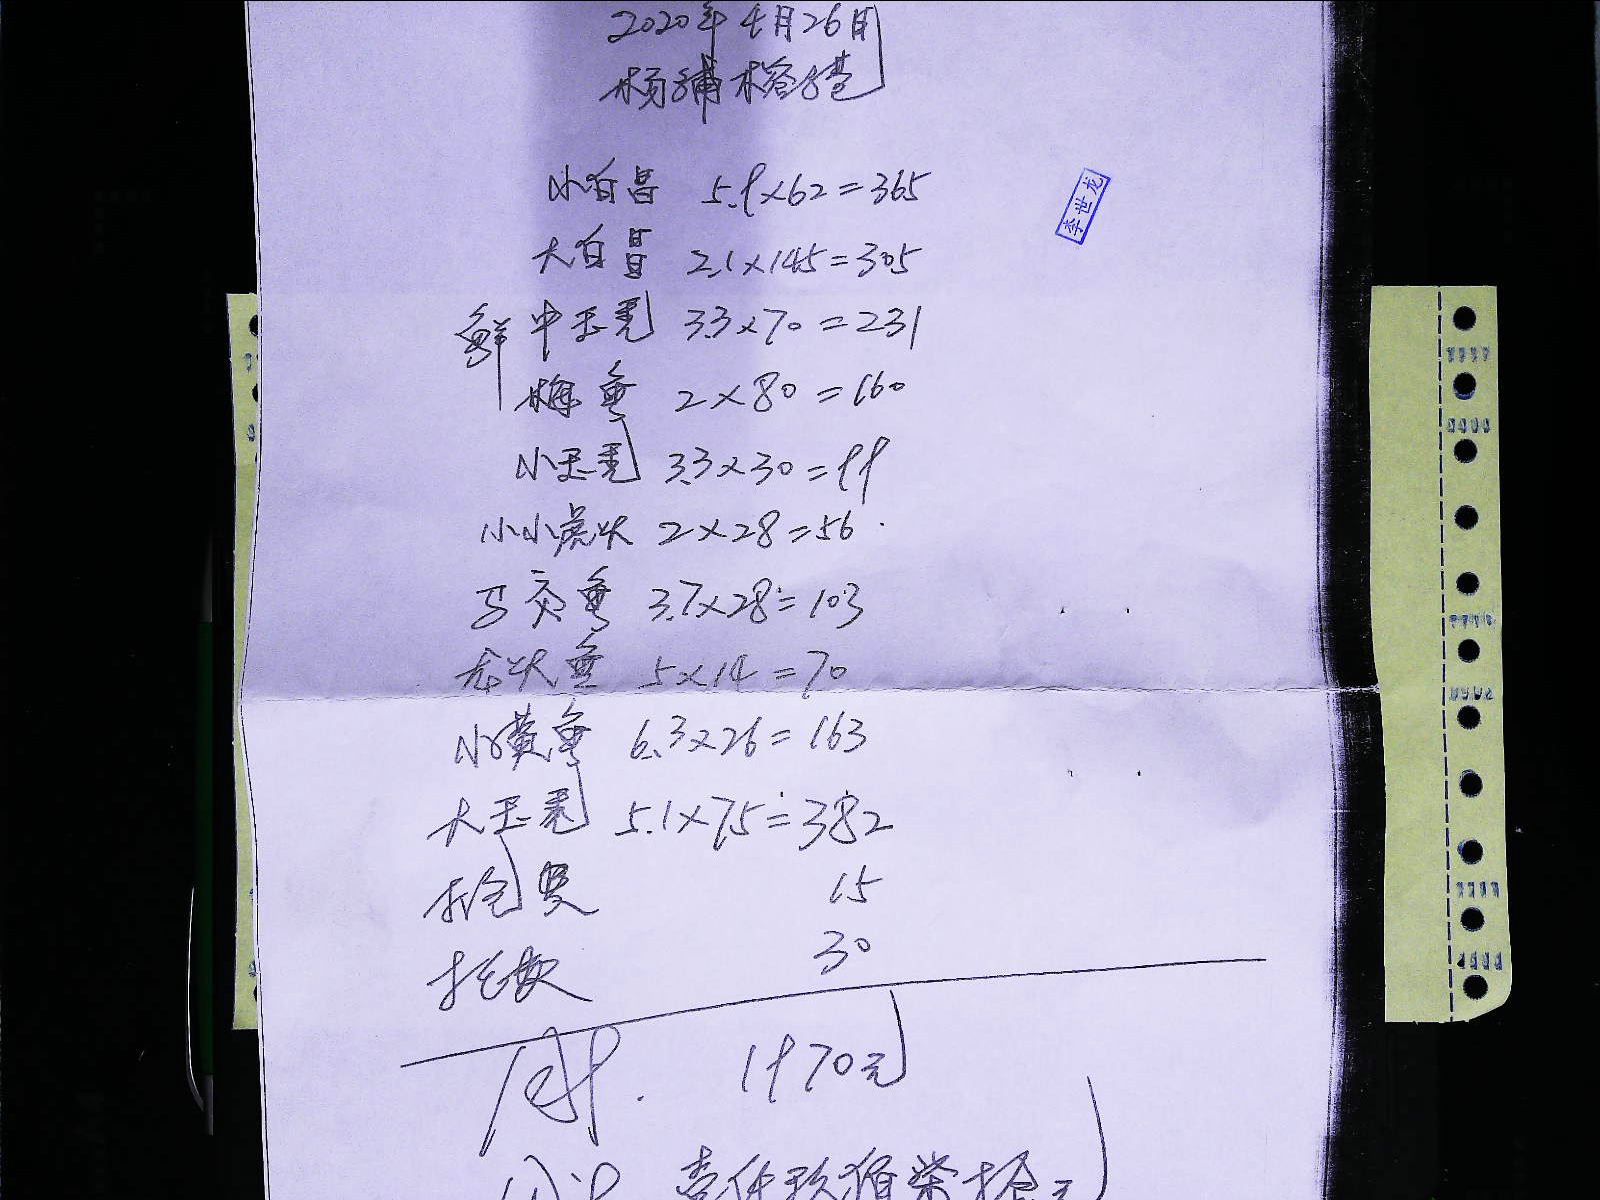 2020年4月26日
杨浦榕港
小白昌 5.9×62=365
大白昌 2.1×145=305
李世龙
鲜中玉秃 3.3×70=231
梅鱼 2×80=160
小玉秃 3.3×30=99
小小虎头 2×28=56
马交鱼 3.7×28=103
龙头鱼 5×14=70
小黄鱼 6.3×26=163
大玉秃 5.1×75=382
15
30
1970元
壹仟玖佰柒拾元